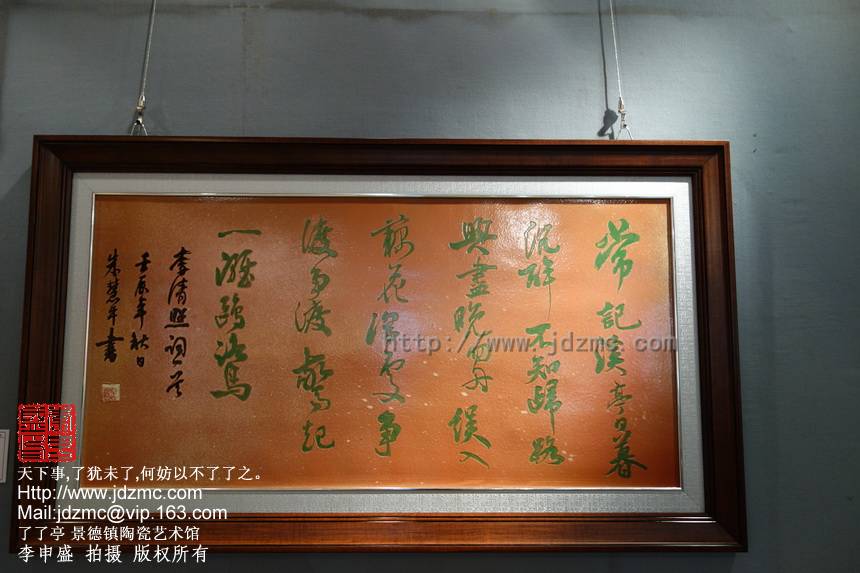 常記溪亭日暮
沉醉不知歸路
興盡晚回舟誤入
藕花深處爭
渡爭渡驚起
一灘鷗鷺
李清照詞一首
壬辰年秋日
朱慧平書
http://www.jdzmc.com
天下事,了犹未了,何妨以不了了之。
Http://www.jdzmc.com
Mail:jdzmc@vip.163.com
了了亭 景德镇陶瓷艺术馆
李申盛 拍摄 版权所有